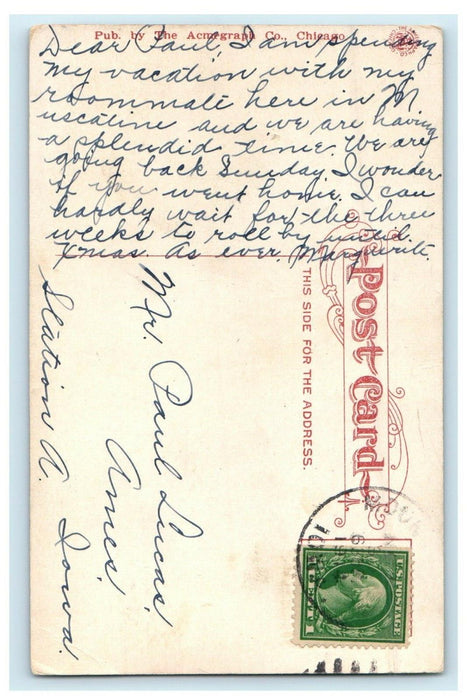 Pub. by The Acmegraph Co., Chicago
Dear Paul, I am spending
my vacation with my
roommate here in M
uscatine and we are having
a splendid time. We are
going back Sunday. I wonder
if you went home. I can
hardly wait for the three
weeks to roll by until
Xmas. As ever. Marguerite.
Post Card
THIS SIDE FOR THE ADDRESS.
Mr. Paul Lucas,
Ames,
Station A. Iowa.
U.S. POSTAGE
1